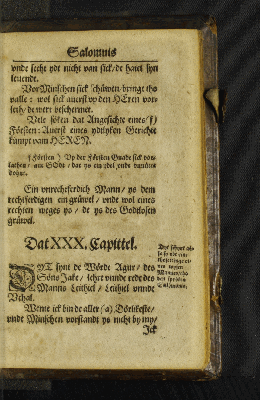 Salomnis
vnde secht ydt nicht van sick / de hatet syn
leuendt.
Vor Minschen sick schüwen / bringt tho
valle : wol sick auerst vp den HEren vor-
leth / de wert beschermet.
Vele söken dat Angesichte eines / f)
Försten : Auerst eines ydtlyken Gerichte
kumpt vam HEREN.
f Försten ) Vp der Försten Gnade sick vor-
lathen / ane Godt / dat ys
Ein vnrechtferdich Mann / ys dem
rechtferdigen ein grüwel / vnde wol eines
rechten weges ys / de ys des Godtlosen
grüwel.
Dat XXX. Capittel.
DYT synt de Wörde Agur / des
Söns Jake / Lehre vnde rede des
Manns Leithiel / Leithiel vnnde
Vchal.
Wente ick bin de aller (a) Dörlikeste /
vnde Minschen vorstandt ys nicht by my /
Ick